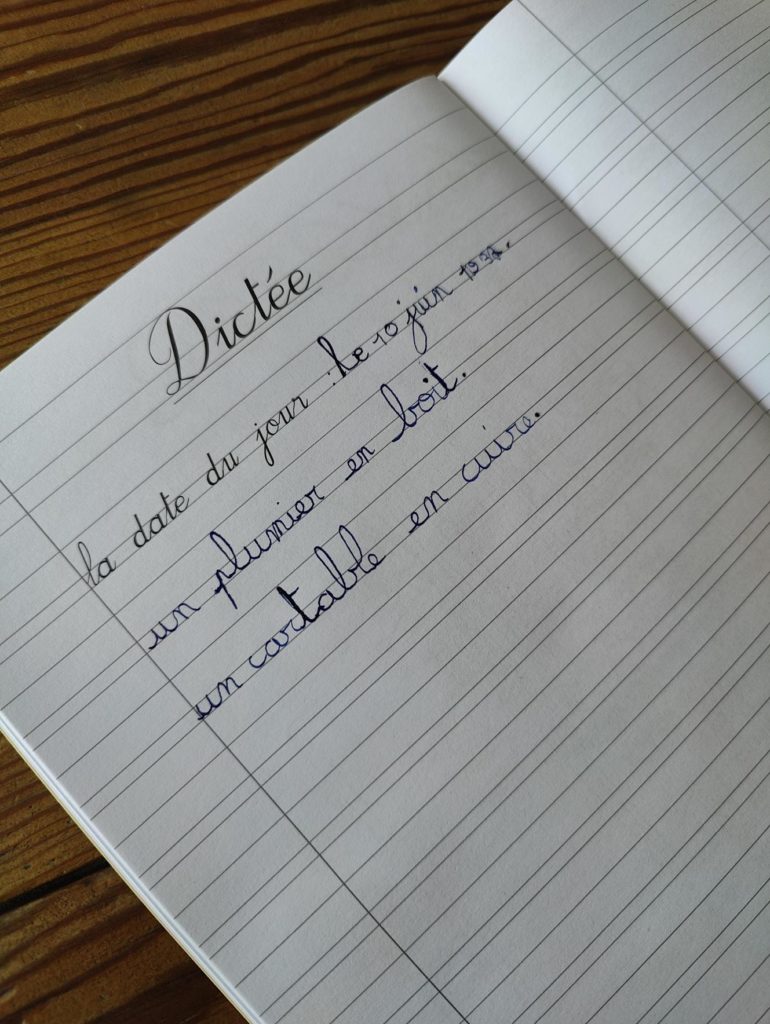 Dictée
la date du jour : le 10 juin
un plumier en boit.
un cartable en cuire.